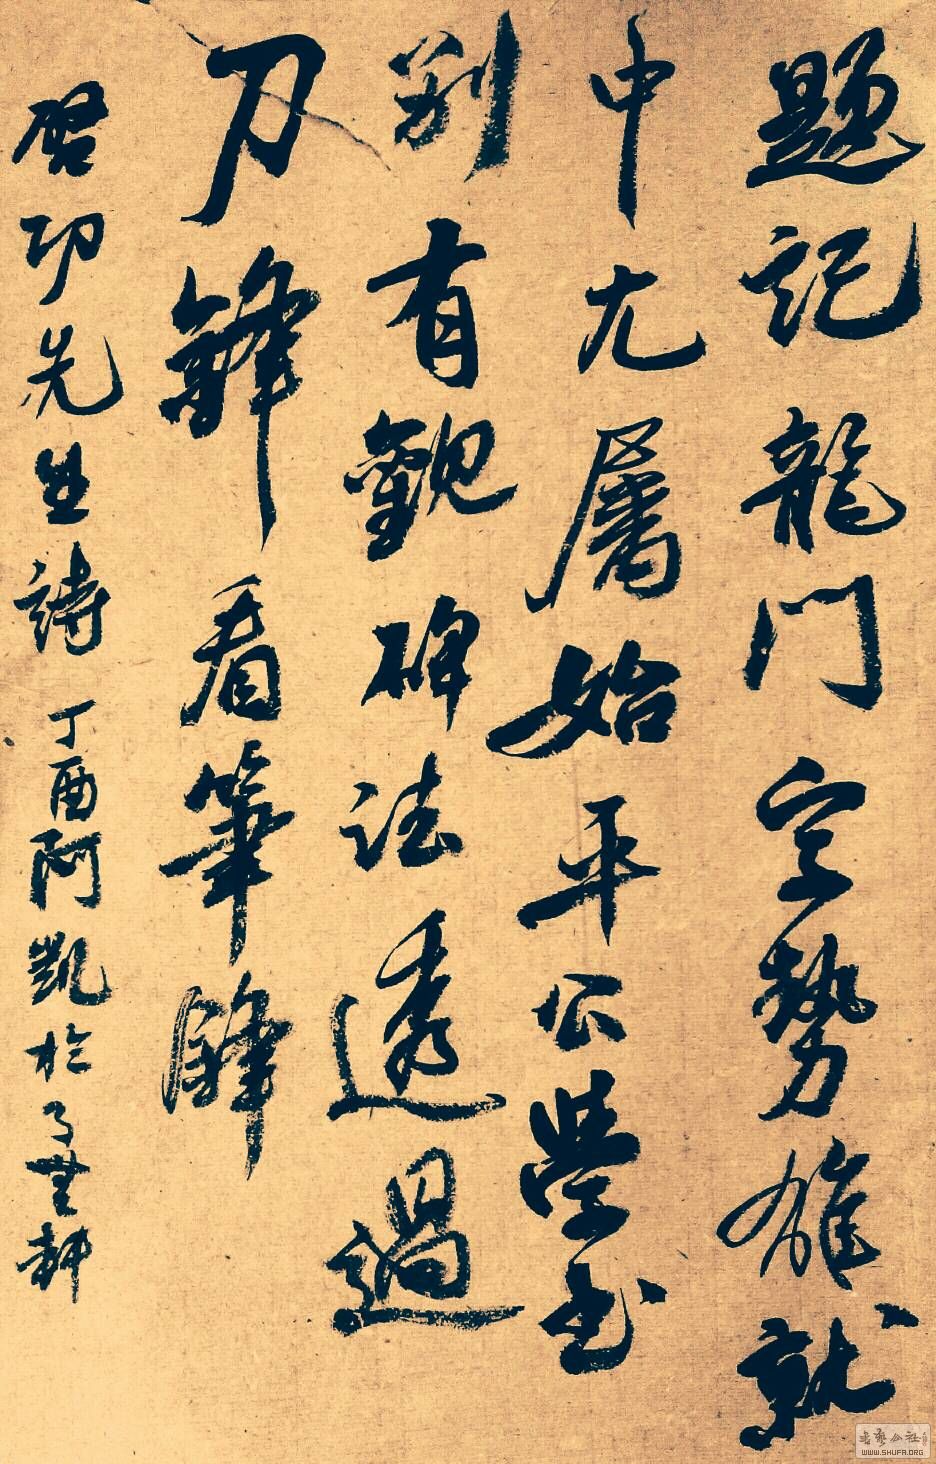 題記龍門字勢雄就
中尤屬始平公學书
别有觀碑法透過
刀鋒看筆鋒
啓功先生詩 丁酉阿凱於
WWW.SHUFA.ORG